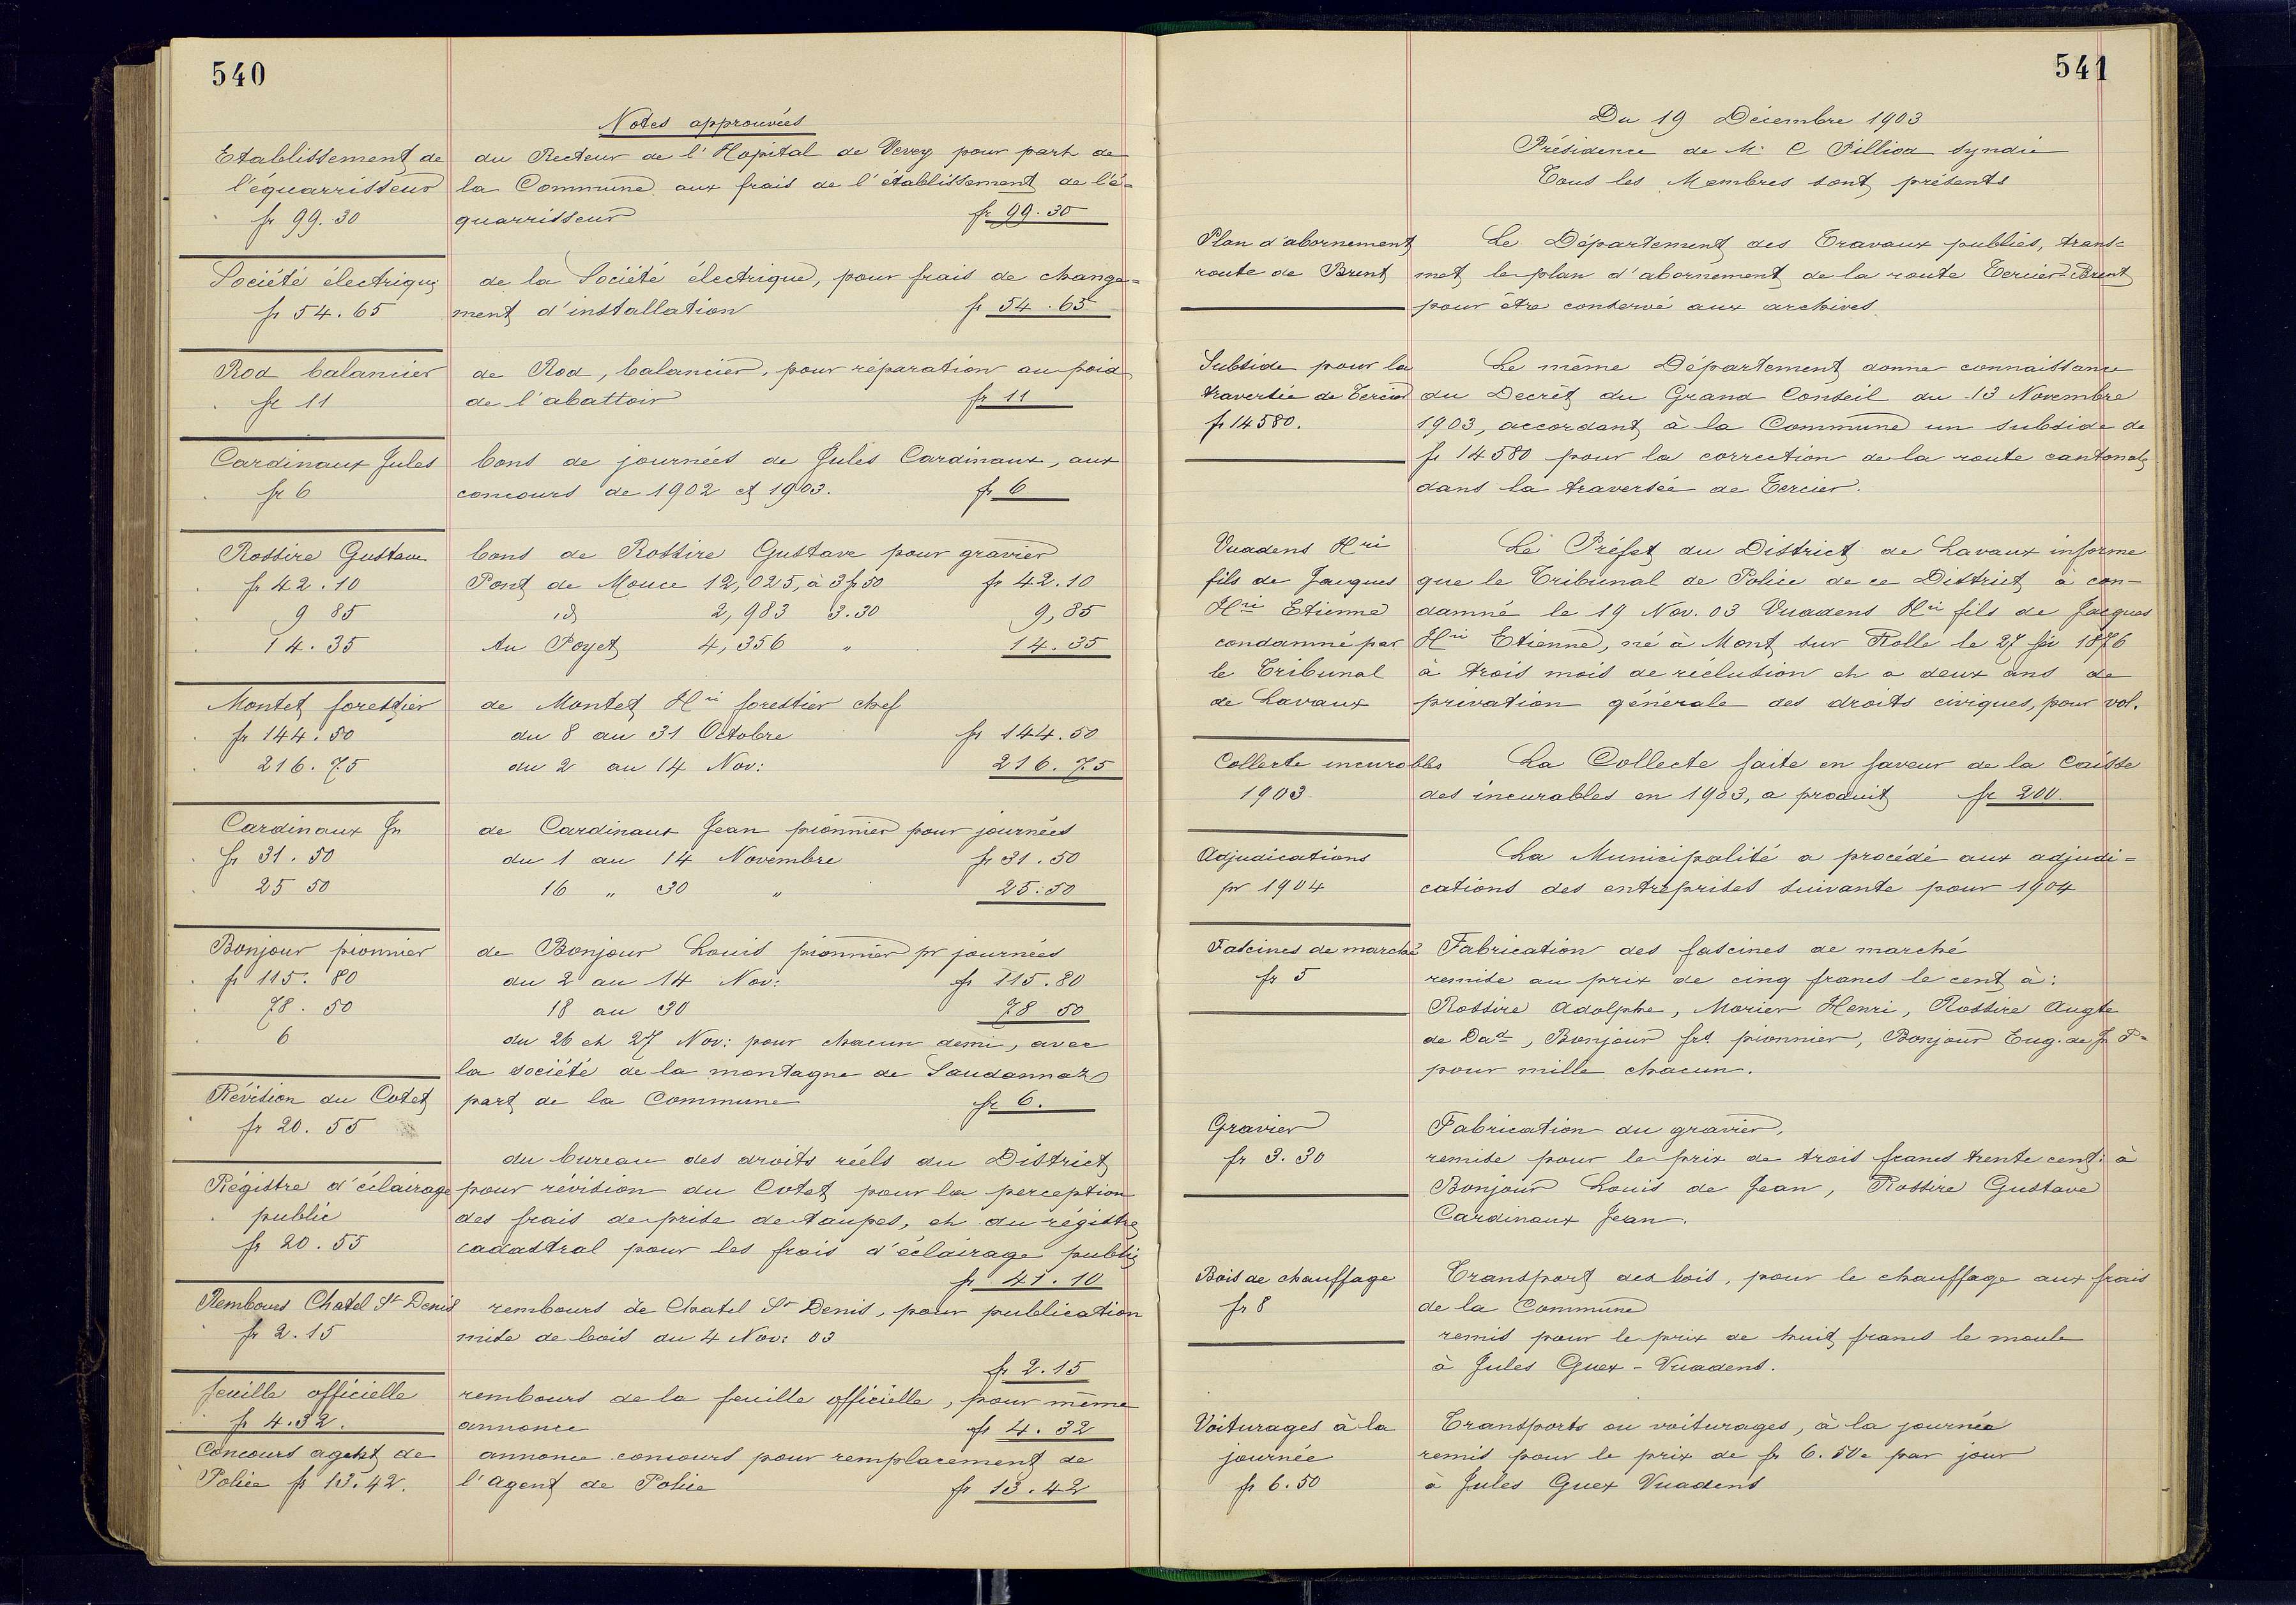 540
Notes approuvées
Etablissement de
l'équarrisseur
fr 99.30
du Recteur de l'Hopital de Vevey pour part de
la Commune aux frais de l'établissement de l'é=
quarrisseur fr 99.30
Société électrique
fr 54.65
de la Société électrique, pour frais de change=
ment d'installation fr 54.65
Rod balancier
fr 11
de Rod, balancier, pour réparation au poid
de l'abattoir fr 11
Cardinaux Jules
fr 6
bons de journées de Jules Cardinaux, aux
concours de 1902 et 1903. fr 6
Rossire Gustave
fr 42.10
9 85
14.35
bons de Rossire Gustave pour gravier
Pont de Mouce 12,025, à 3 fr 50 fr 42.10
id 2,983 3.30 9,85
Au Poyet 4,356 " 14.35
Montet forestier
fr 144.50
216.75
de Montet Hri forestier chef
du 8 au 31 Octobre fr 144.50
du 2 au 14 Nov: 216.75
Cardinaux Jn
fr 31.50
25 50
de Cardinaux Jean pionnier pour journées
du 1 au 14 Novembre fr 31.50
16 " 30 " 25.50
Bonjour pionnier
fr 115.80
78.50
6
de Bonjour Louis pionnier pr journées
du 2 au 14 Nov: fr 115.80
18 au 30 78 50
du 26 et 27 Nov: pour chacun demi, avec
la société de la montagne de Saudannaz
part de la Commune fr 6.
Révision du Cotet
fr 20.55
Régistre d'éclairage
public
fr 20.55
du bureau des droits réels du District
pour révision du Cotet pour la perception
des frais de prise de taupes, et du régistre
cadastral pour les frais d'éclairage public
fr 41.10
Rembours Chatel St Denis
fr 2.15
rembours de Chatel St Denis, pour publication
mise de bois du 4 Nov: 03
fr 2.15
feuille officielle
fr 4.32.
rembours de la feuille officielle, pour même
annonce fr 4.32
Concours agent de
Police fr 13.42.
annonce concours pour remplacement de
l'agent de Police fr 13.42
541
Du 19 Décembre 1903
Présidence de Mr C Pilliod syndic
Tous les Membres sont présents
Plan d'abornement
route de Brent
Le Département des Travaux publics, trans=
met le plan d'abornement de la route Tercier-Brent
pour être conservé aux archives
Subside pour la
traversée de Tercier
fr 14580.
Le même Département donne connaissance
du Decrêt du Grand Conseil du 13 Novembre
1903, accordant à la Commune un subside de
fr 14580 pour la correction de la route cantonale
dans la traversée de Tercier.
Vuadens Hri
fils de Jacques
Hri Etienne
condamné par
le Tribunal
de Lavaux
Le Préfet du District de Lavaux informe
que le Tribunal de Police de ce District à con-
damné le 19 Nov. 03 Vuadens Hri fils de Jacques
Hri Etienne, né à Mont sur Rolle le 27 fév 1876
à trois mois de réclusion et a deux ans de
privation générale des droits civiques, pour vol.
Collecte incurables
1903
La Collecte faite en faveur de la Caisse
des incurables en 1903, a produit fr 200.
Adjudications
pr 1904
La Municipalité a procédé aux adjudi=
cations des entreprises suivante pour 1904
Fascines de marché
fr 5
Fabrication des fascines de marché
remise au prix de cinq francs le cent à:
Rossire Adolphe, Morier Henri, Rossire Augte
de Dad, Bonjour frs pionnier, Bonjour Eug. de Jn P=
pour mille chacun.
Gravier
fr 3.30
Fabrication du gravier.
remise pour le prix de trois francs trente cent: à
Bonjour Louis de Jean, Rossire Gustave
Cardinaux Jean.
Bois de chauffage
fr 8
Transport des bois, pour le chauffage aux frais
de la Commune
remis pour le prix de huit francs le moule
à Jules Guex-Vuadens.
Voiturages à la
journée
fr 6.50
Transports ou voiturages, à la journée
remis pour le prix de fr 6.50. par jour
à Jules Guex Vuadens